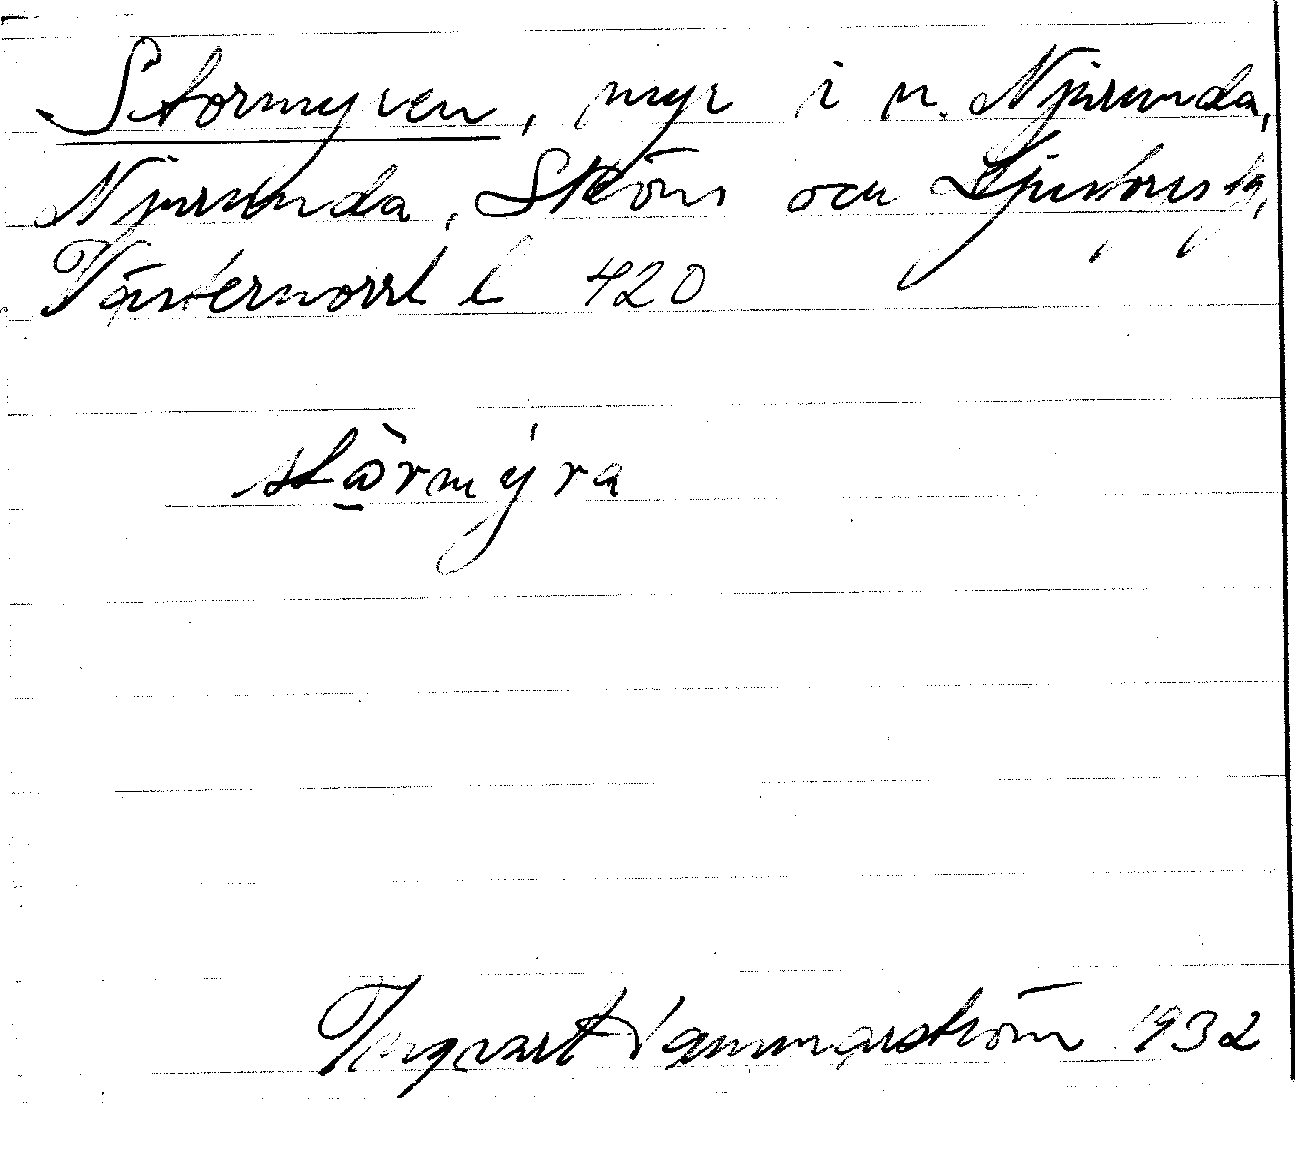 Stormyren, myr i n. Njurunda,
Njurunda, Sköns och Ljustorps tg,
Västernorrl l 420
stǫ̀rmýra
Ingvart Hammarström 1932